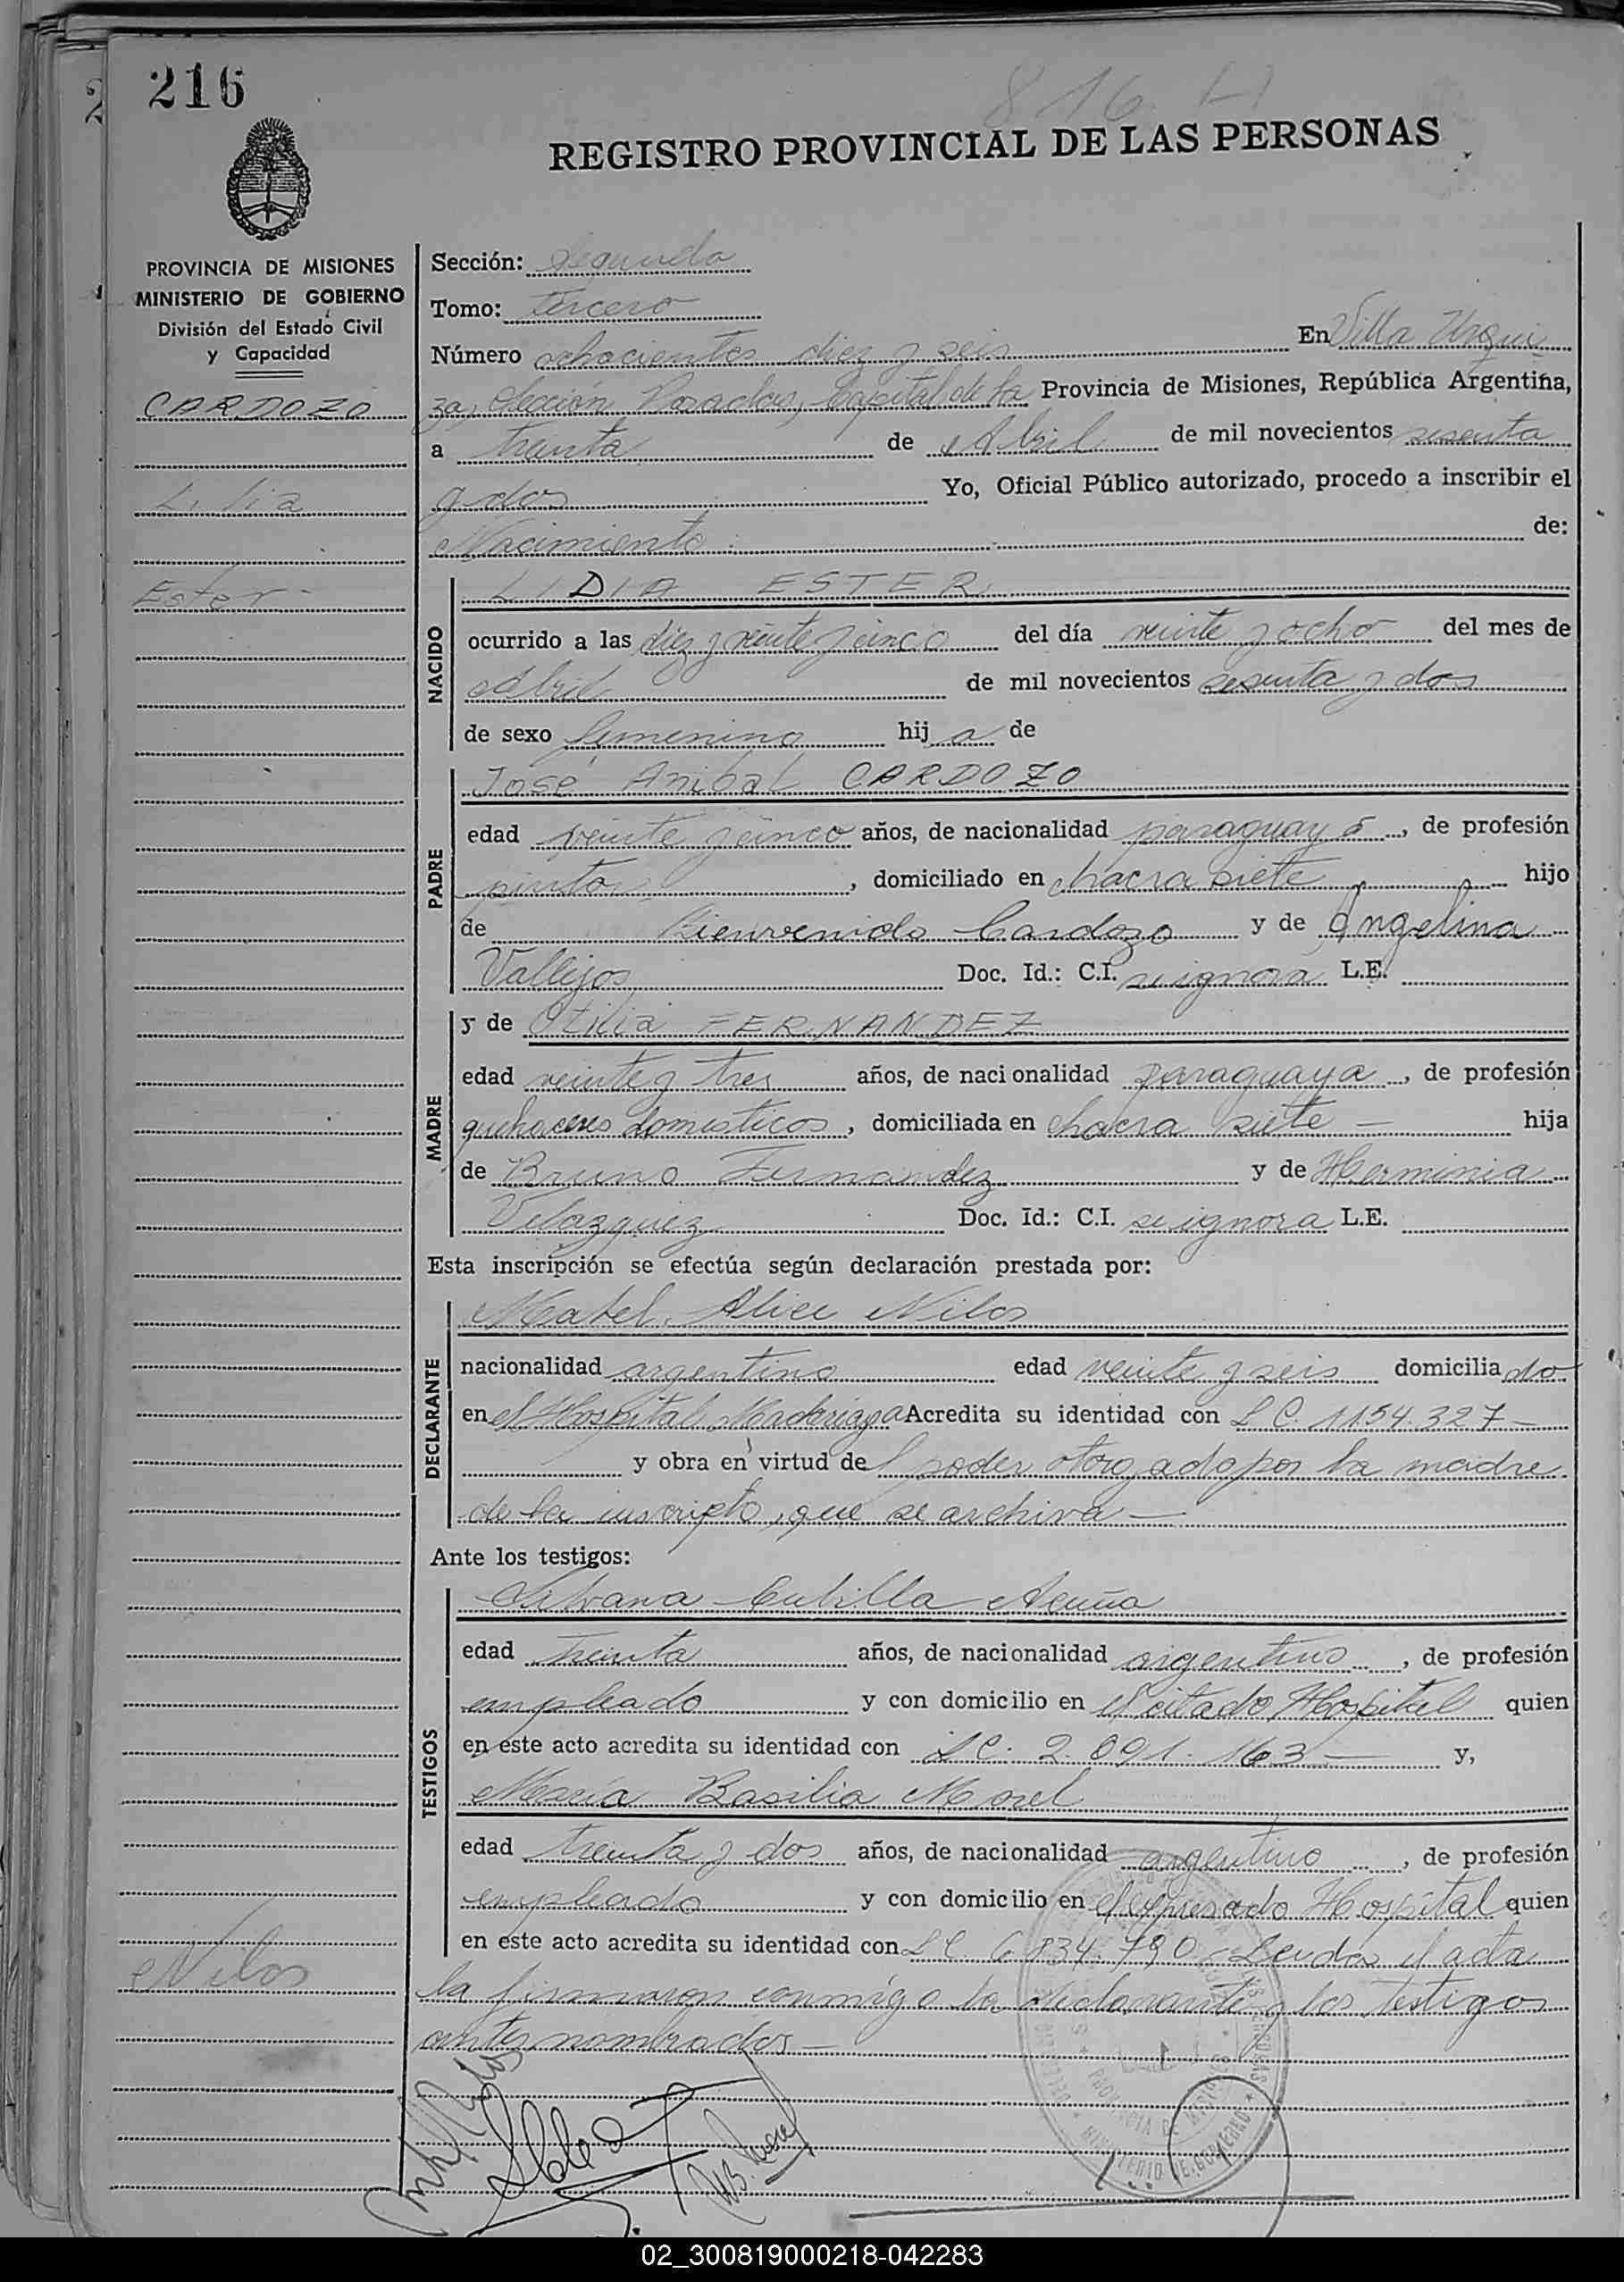 216
816 H
REGISTRO PROVINCIAL DE LAS PERSONAS
PROVINCIA DE MISIONES
MINISTERIO DE GOBIERNO
División del Estado Civil
y Capacidad
CARDOZO
Lidia
Ester
Sección: Segunda
Tomo: Tercero
Número ochocientos diez y seis En Villa Urqui
za, Sección Posadas, Capital de la Provincia de Misiones, República Argentina,
a treinta de Abril de mil novecientos sesenta
y dos Yo, Oficial Público autorizado, procedo a inscribir el
Nacimiento de:
NACIDO
LIDIA ESTER
ocurrido a las diez y veinte y cinco del día veinte y ocho del mes de
Abril de mil novecientos sesenta y dos
de sexo femenino hij a de
PADRE
José Anibal CARDOZO
edad veinte y cinco años, de nacionalidad paraguayo, de profesión
pintor, domiciliado en chacra siete hijo
de Bienvenido Cardozo y de Angelina
Vallejos Doc. Id.: C.I. se ignora L.E.
MADRE
y de Otilia FERNANDEZ
edad veinte y tres años, de nacionalidad paraguaya, de profesión
quehaceres domesticos, domiciliada en chacra siete — hija
de Bruno Fernandez y de Herminia
Velazquez Doc. Id.: C.I. se ignora L.E.
Esta inscripción se efectúa según declaración prestada por:
DECLARANTE
Mabel Alice Nilos
nacionalidad argentina edad veinte y seis domicilia do
en el Hospital Madariaga Acredita su identidad con L C. 1154.327 —
y obra en virtud del poder otorgado por la madre
de la inscripto, que se archiva —
Ante los testigos:
TESTIGOS
Acuña
edad treinta años, de nacionalidad argentino, de profesión
empleado y con domicilio en el citado Hospital quien
en este acto acredita su identidad con L C. 2.091.163 — y,
María Basilia Morel
edad treinta y dos años, de nacionalidad argentino, de profesión
empleado y con domicilio en el expresado Hospital quien
en este acto acredita su identidad con L C 6.834.780 - Leída el acta
la firmaron conmigo la declarante y los testigos
antes nombrados —
Nilos
PROVINCIA DE MISIONES
MINISTERIO DE GOBIERNO
M B. Morel
02_300819000218-042283